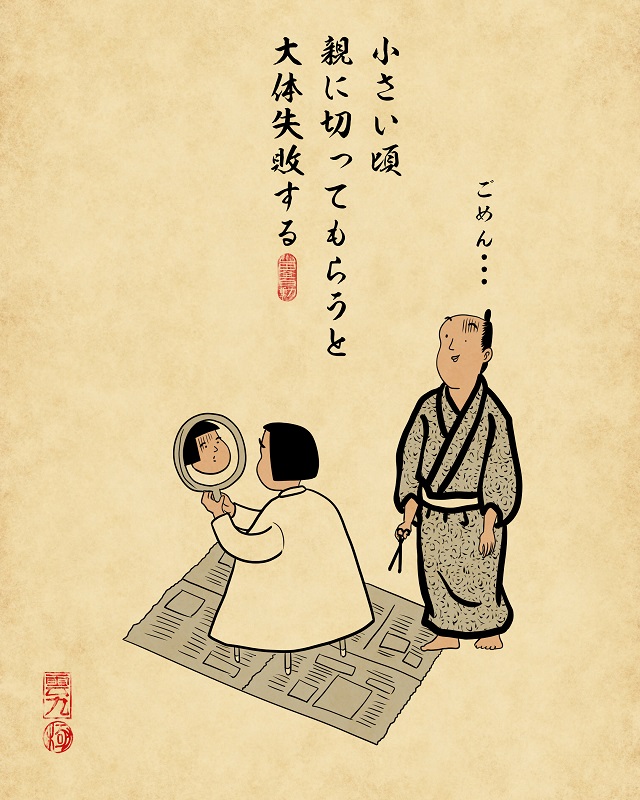 小さい頃
親に切ってもらうと
大体失敗する
ごめん…